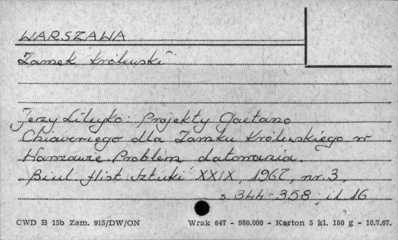 WARSZAWA
Zamek Królewski
Jerzy Lileyko: Projekty Gaetano
Chiaveriego dla Zamku Królewskiego w
Warszawie. Problem datowania.
Biul. Hist. Sztuki XXIX, 1967, nr. 3,
s. 344-358, il. 16
CWD B 15b Zam. 915/DW/ON Wrak 647 - 980.000 - Karton 5 kl. 180 g - 10.7.67.